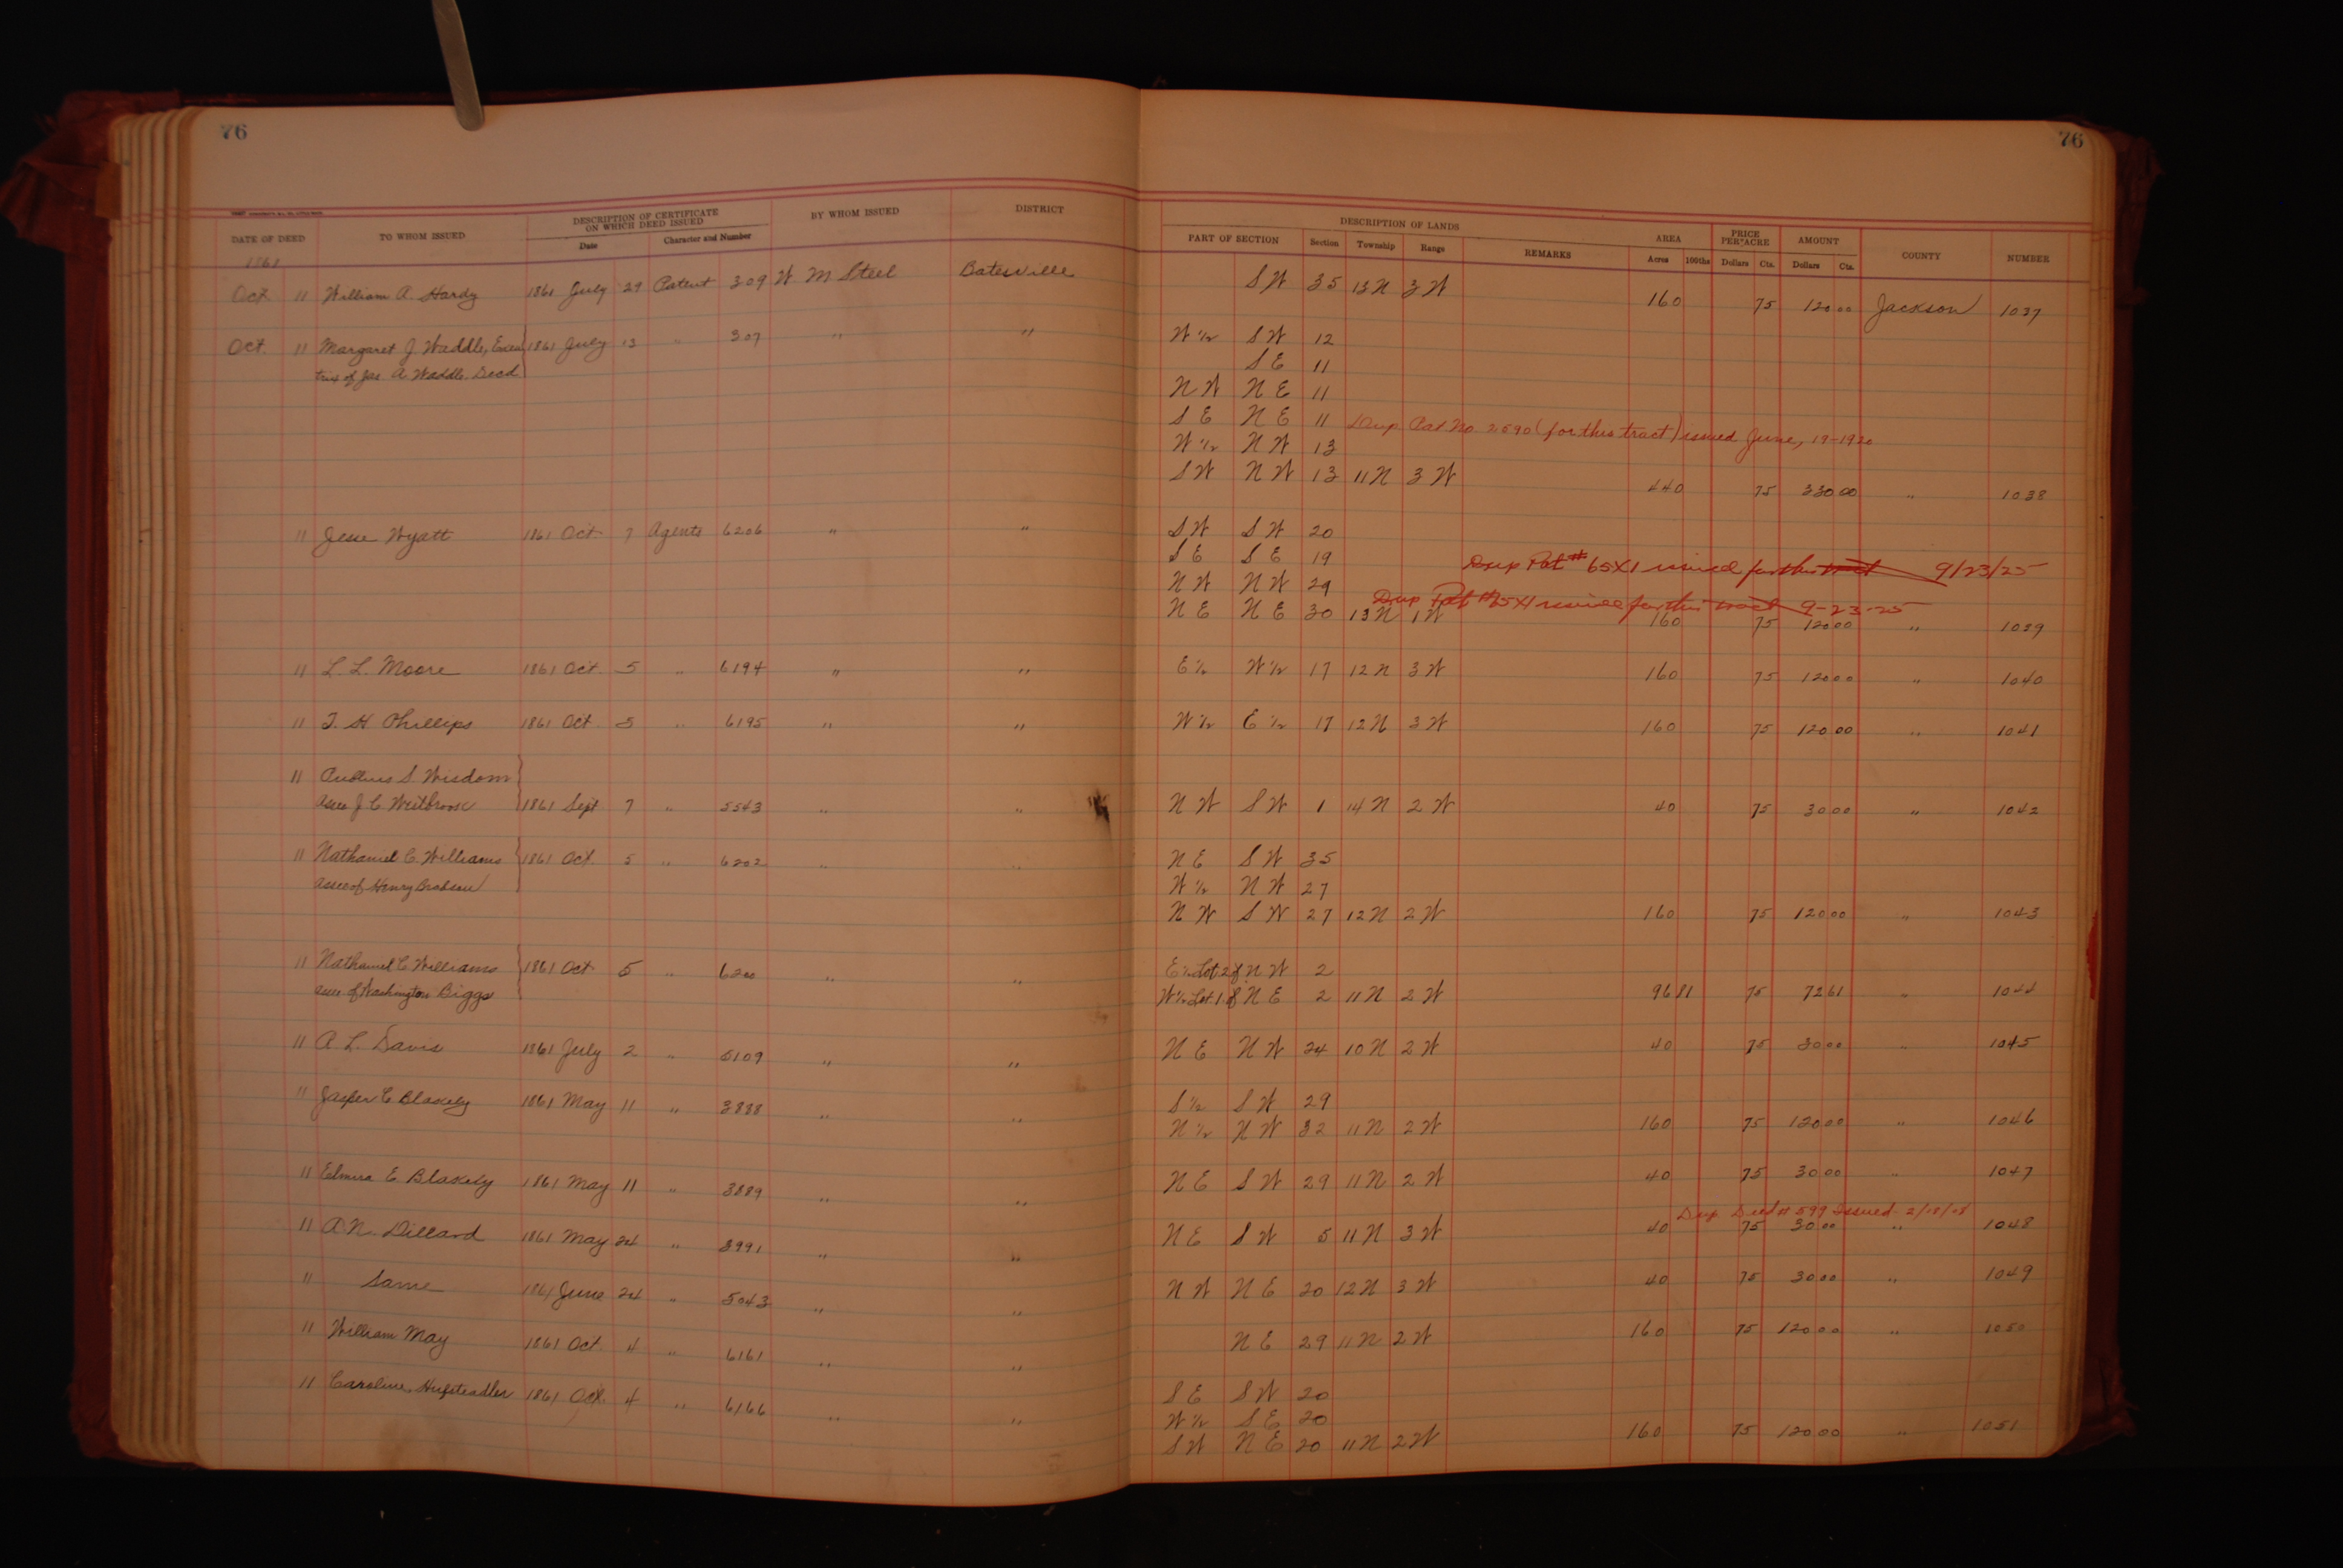 76 76
DATE OF DEED TO WHOM ISSUED DESCRIPTION OF CERTIFICATE ON WHICH DEED ISSUED Date Character and Number BY WHOM ISSUED DISTRICT DESCRIPTION OF LANDS PART OF SECTION Section Township Range REMARKS AREA Acres 100ths PRICE PER ACRE Dollars Cts. AMOUNT Dollars Cts. COUNTY NUMBER
1861
Oct 11 William A. Hardy 1861 July 29 Patent 309 W M Steel Batesville SW 35 13N 3W 160 75 120 00 Jackson 1037
Oct. 11 Margaret J Waddle, Execu 1861 July 13 " 307 " " W 1/2 SW 12
trix of Jas A. Waddle. Decd SE 11
NW NE 11
SE NE 11 Dup Pat No 2590 (for this tract) issued June, 19-1920
W 1/2 NW 13
SW NW 13 11N 3W 440 75 330 00 " 1038
11 Jesse Wyatt 1861 Oct 7 Agents 6206 " " SW SW 20
SE SE 19 Dup Pat # 65X1 issued for this tract 9/23/25
NW NW 29
NE NE 30 13N 1W Dup Pat #65X1 issued for this tract 9-23-25
160 75 120 00 " 1039
11 L. L. Moore 1861 Oct. 5 " 6194 " " E 1/2 W 1/2 17 12N 3W 160 75 120 00 " 1040
11 T. H. Phillips 1861 Oct 5 " 6195 " " W 1/2 E 1/2 17 12N 3W 160 75 120 00 " 1041
11 S. Wisdom
Assee J. C. Westbrook 1861 Sept 7 " 5543 " " NW SW 1 14N 2W 40 75 30 00 " 1042
11 Nathaniel C. Williams 1861 Oct. 5 " 6202 " " NE SW 35
Assee of Henry W 1/2 NW 27
NW SW 27 12N 2W 160 75 120 00 " 1043
11 Nathaniel C. Williams 1861 Oct 5 " 6200 " " E 1/2 Lot 2 of NW 2
Assee of Washington Biggs W 1/2 Lot 1 of NE 2 11N 2W 96 81 75 72 61 " 1044
11 A. L. Davis 1861 July 2 " 5109 " " NE NW 24 10N 2W 40 75 30 00 " 1045
11 Jasper C Blakely 1861 May 11 " 3888 " " S 1/2 SW 29
N 1/2 NW 32 11N 2W 160 75 120 00 " 1046
11 Elmira E Blakely 1861 May 11 " 3889 " " NE SW 29 11N 2W 40 75 30 00 " 1047
Dup Deed # 599 Issued 2/18/18
11 A. N. Dillard 1861 May 24 " 3991 " " NE SW 5 11N 3W 40 75 30 00 " 1048
11 Same 1861 June 24 " 5043 " " NW NE 20 12N 3W 40 75 30 00 " 1049
11 William May 1861 Oct. 4 " 6161 " " NE 29 11N 2W 160 75 120 00 " 1050
11 Caroline Hufsteadler 1861 Oct. 4 " 6166 " " SE SW 20
W 1/2 SE 20
SW NE 20 11N 2W 160 75 120 00 " 1051